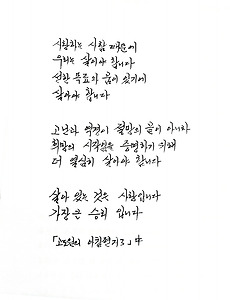 사랑하는 사람 때문에
우리는 살아야 합니다
선한 목표와 꿈이 있기에
살아야 합니다
고난과 역경이 절망의 끝이 아니라
희망의 시작임을 증명하기 위해
더 열심히 살아야 합니다
살아 있는 것은 사랑입니다
가장 큰 승리 입니다
「고도원의 아침편지」中